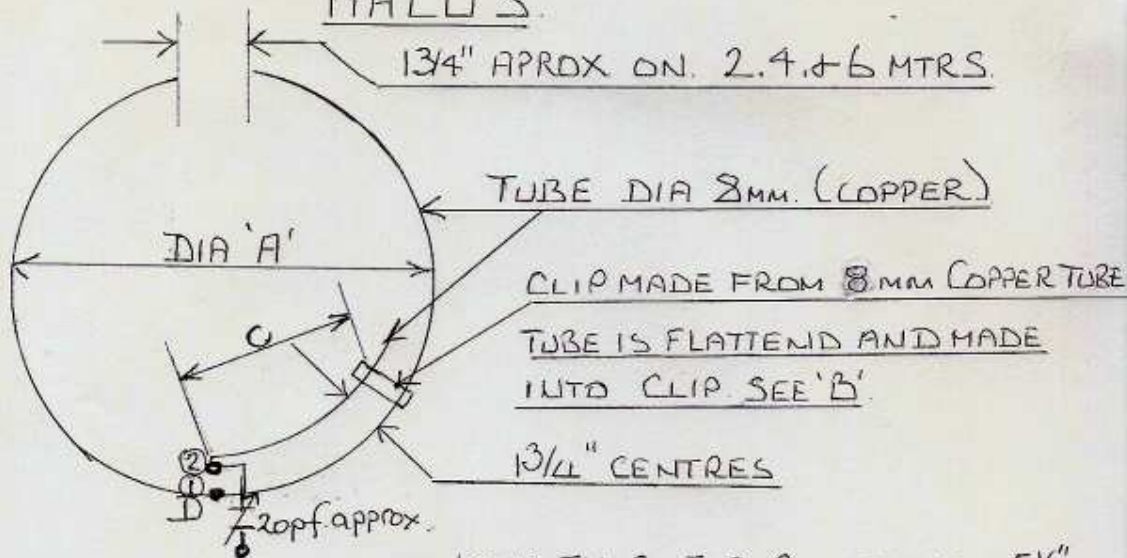 HALO'S.
13/4" APROX ON. 2.4.& 6 MTRS.
TUBE DIA 8MM. (COPPER)
DIA 'A'
CLIP MADE FROM 8 MM COPPER TUBE
C
TUBE IS FLATTEND AND MADE
INTO CLIP. SEE 'B'.
13/4" CENTRES
②
①
D
20pf.approx.
5½"